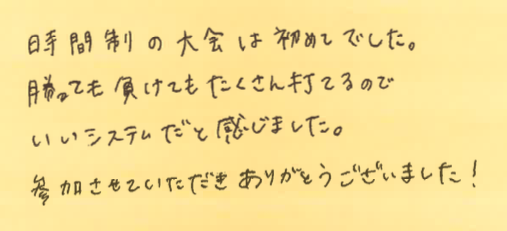 時間制の大会は初めてでした。
勝っても負けてもたくさん打てるので
いいシステムだと感じました。
参加させていただきありがとうございました！